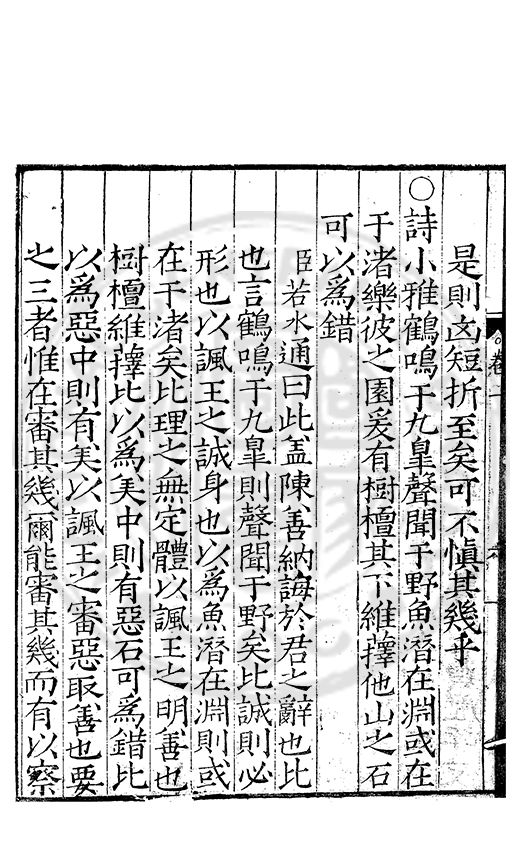 是則凶短折至矣可不愼其幾乎
○詩小雅鶴鳴于九臯聲聞于野魚潛在淵或在
于渚樂彼之園爰有樹檀其下維蘀他山之石
可以爲錯
臣若水通曰此盖陳善納誨於君之辭也比
也言鶴鳴于九臯則聲聞于野矣比誠則必
形也以諷王之誠身也以爲魚潛在淵則或
在于渚矣比理之無定體以諷王之明善也
樹檀維蘀比以爲美中則有惡石可爲錯比
以爲惡中則有美以諷王之審惡取善也要
之三者惟在審其幾爾能審其幾而有以察